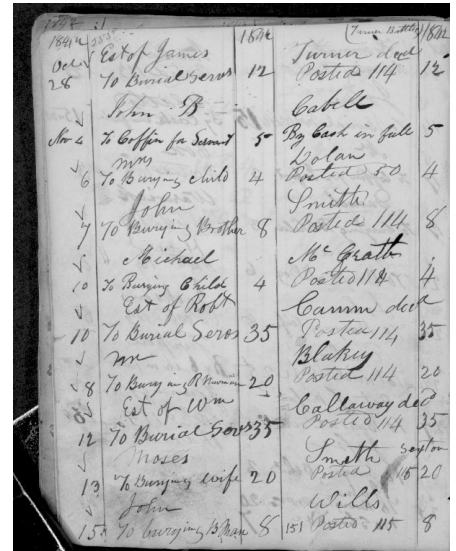 1842 1842 (Turner Bottles) 1842
Octr Est of James Turner decd
28 To Burial Servs 12 Posted 114 12
John B Cabell
Nov 4 To Coffin for Servant 5 By Cash in full 5
Mrs Dolan
6 To Burying Child 4 Posted 50 4
John Smith
7 To Burying Brother 8 Posted 114 8
Michael McGrath
10 To Burying Child 4 Posted 114 4
Est of Robt Camm decd
10 To Burial Servs 35 Posted 114 35
Mr Blakey
8 To Burying R 20 Posted 114 20
Est of Wm Callaway decd
12 To Burial Servs 35 Posted 114 35
Moses Smith Sexton
13 To Burying wife 20 Posted 115 20
John Wills
15 To burying B Man 8 151 Posted 115 8